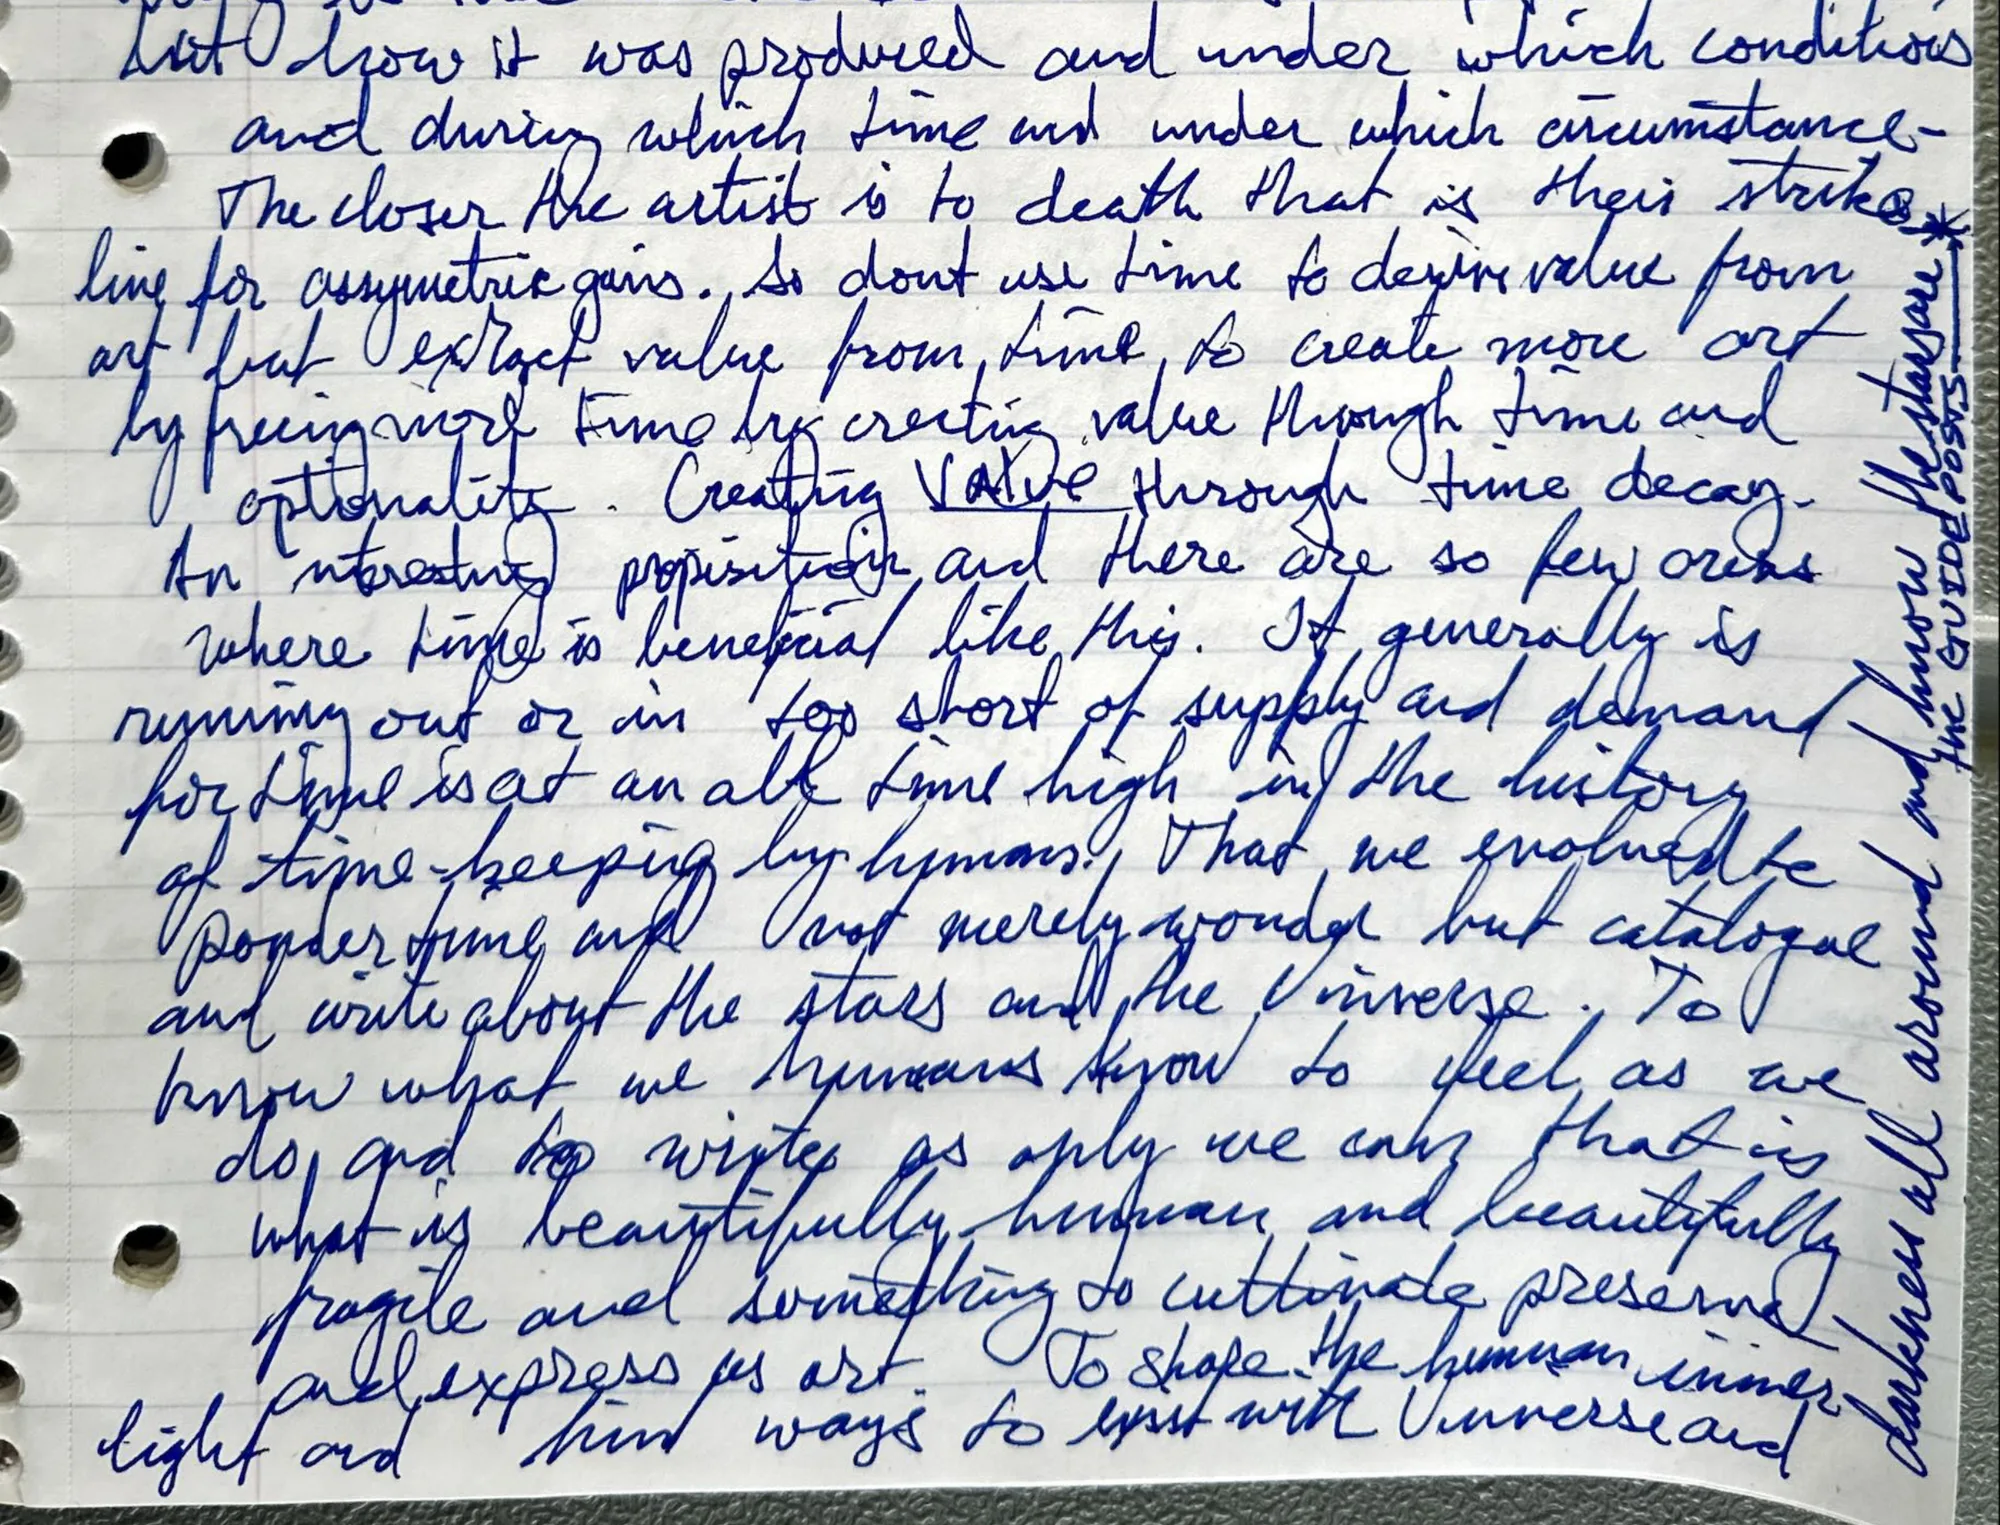 but how it was produced and under which conditions
and during which time and under which circumstance-
The closer the artist is to death that is their strike
line for assymetric gains. So dont use time to derive value from
art but extract value from time to create more art
by freeing more time by creating value through time and
optionality. Creating VALUE through time decay.
An interesting proposition and there are so few areas
where time is beneficial like this. It generally is
running out or in too short of supply and demand
for time is at an all time high in the history
of time-keeping by humans. That we evolved to
ponder time and not merely wonder but catalogue
and write about the stars and the Universe. To
know what we humans know to feel as we
do, and to write as only we can that is
what is beautifully human and beautifully
fragile and something to cultivate preserve
and express as art. To shape the human inner
light and find ways to exist with Universe and
darkness all around and know the stars are *
* the GUIDE POSTS